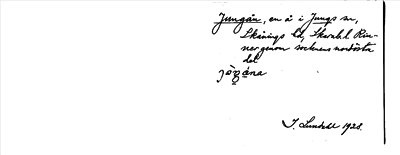 Jungån, en å i Jungs sn,
Skånings hd, Skarabl. Rin-
ner genom socknens nordöstra
del
J. Lundell 1928.